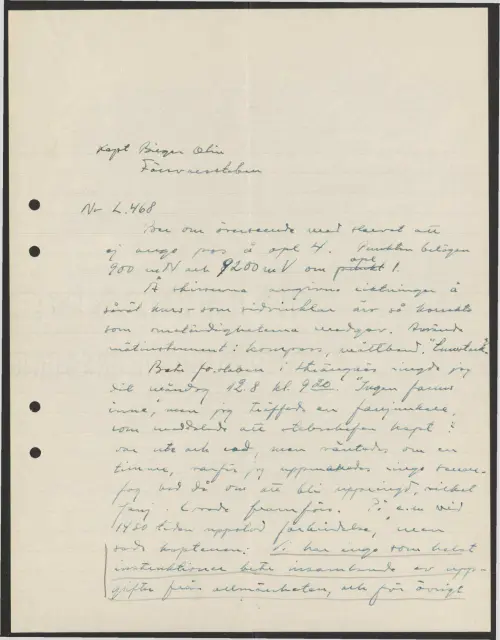 Kapt Birger Olin
Försvarsstaben
Nr L.468
Ber om överseende med slarvet att
ej ange pos å opl 4. Punkten belägen
900 m N och 9200 m V om punkt opl 1.
Å skisserna angivna riktningar å
såväl kurs- som sidvinklar är så korrekta
som omständigheterna medgav. Använda
mätinstrument: kompass, måttband, "tumstock".
Betr. fo-staben i ringde jag
dit måndag 12.8 kl. 9.20. "Ingen fanns
inne", men jag träffade en fanjunkare,
som meddelade att stabschefen kapt ?
var ute och red, men väntades om en
timme, varför jag uppmanades ringa senare.
Jag bad då om att bli uppringd, vilket
fanj. lovade framföra. På e.m. vid
1430 tiden uppstod förbindelse, men
sade kaptenen: Vi har inga som helst
instruktioner betr. insamlande av upp-
gifter från allmänheten, och för övrigt